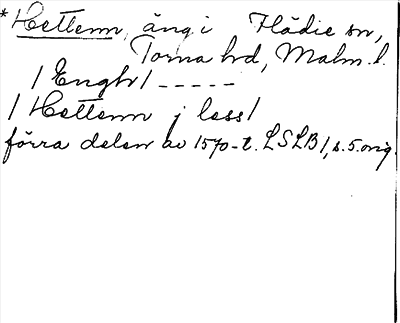 *Hettenn, äng i Flädie sn,
Torna hd, Malm. l.
/ Enghr / -----
/ Hettenn j less /
förra delen av 1570-t. LSLB 1, s. 5. orig.